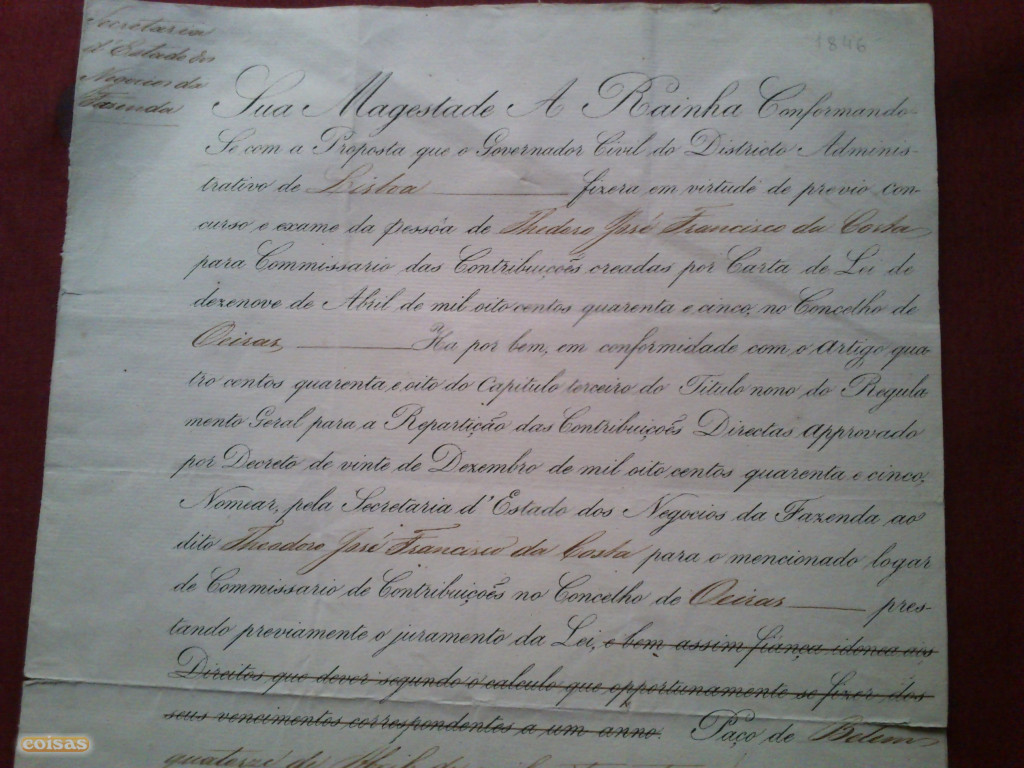 Secretaria
d'Estado dos
Negocios da
Fazenda
1846
Sua Magestade A Rainha Conformando-
Se com a Proposta que o Governador Civil do Districto Adminis-
trativo de Lisboa fizera em virtude de previo con-
curso e exame da pessôa de Theodoro José Francisco da Costa
para Commissario das Contribuiçoẽs creadas por Carta de Lei de
dezenove de Abril de mil oito centos quarenta e cinco, no Concelho de
Oeiras Ha por bem, em conformidade com o Artigo qua-
tro centos quarenta e oito do Capitulo terceiro do Titulo nono do Regula
mento Geral para a Repartição das Contribuiçoẽs Directas Approvado
por Decreto de vinte de Dezembro de mil oito centos quarenta e cinco,
Nomear, pela Secretaria d'Estado dos Negocios da Fazenda ao
dito Theodoro José Francisco da Costa para o mencionado logar
de Commissario de Contribuiçoẽs no Concelho de Oeiras pres-
tando previamente o juramento da Lei, e bem assim fiança idonea aos
Direitos que dever segundo o calculo que opportunamente se fizer dos
seus vencimentos correspondentes a um anno. Paço de Belem
quatorze de Abril de mil
coisas